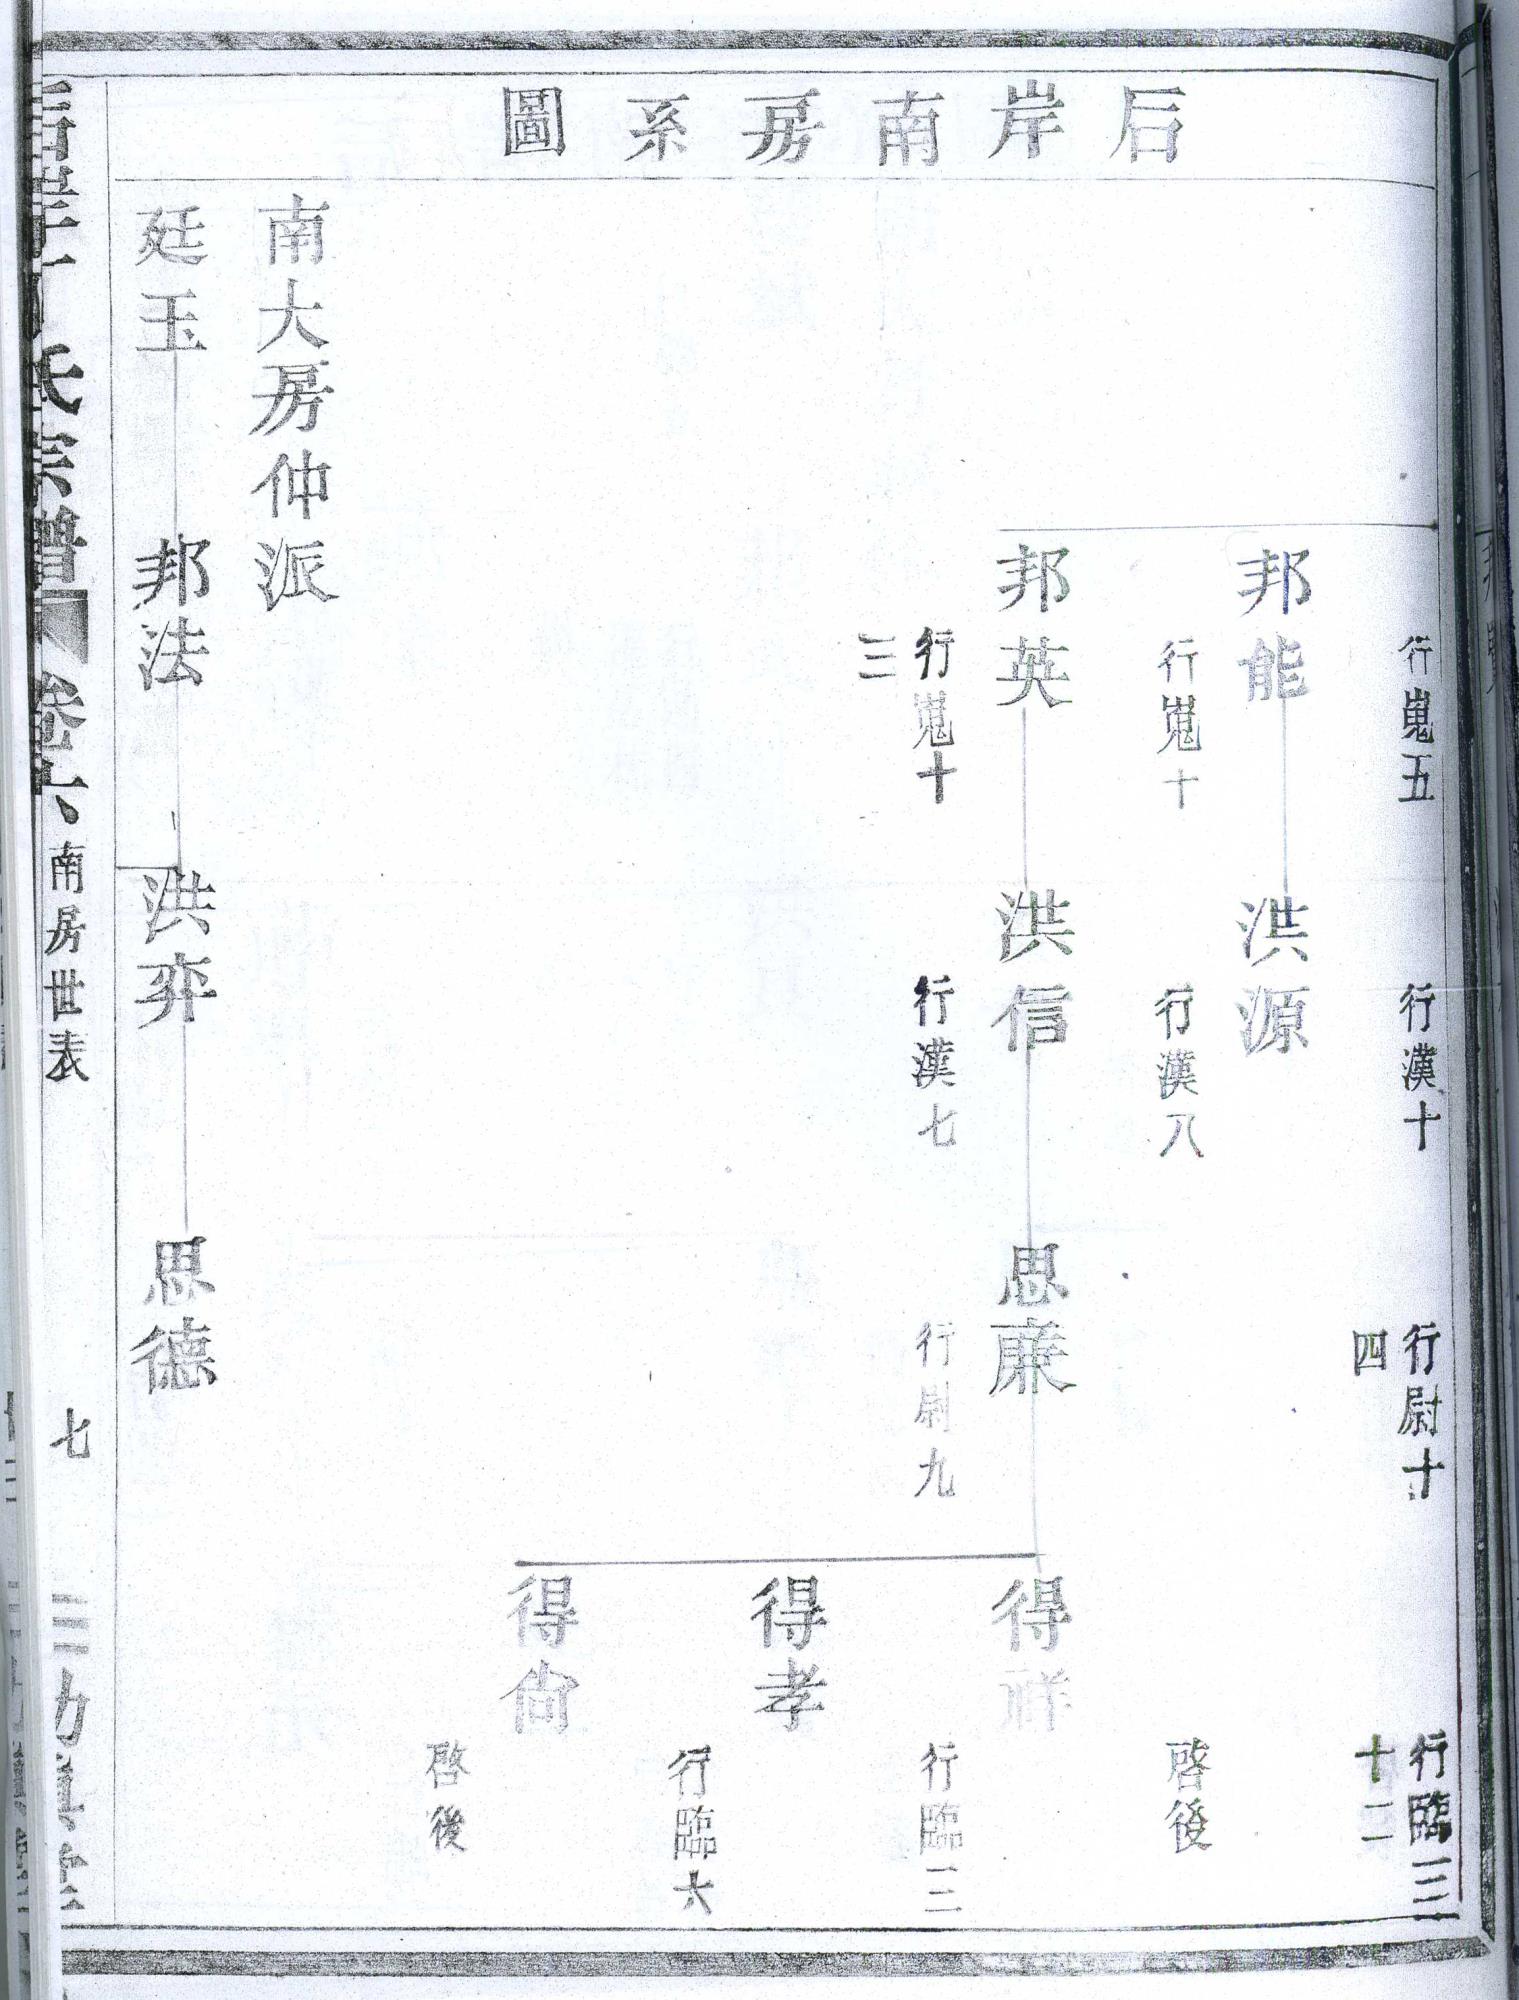 后岸南房系圖
行嵬五
行漢十
行尉十
四
行臨三
十二
邦能
洪源
行嵬十
行漢八
啓後
邦英
洪信
思廉
得祥
行嵬十
三
行漢七
行尉九
行臨三
得孝
行臨六
得尙
啓後
南大房仲派
廷玉
邦法
洪弈
思德
氏宗譜
卷六
南房世表
七